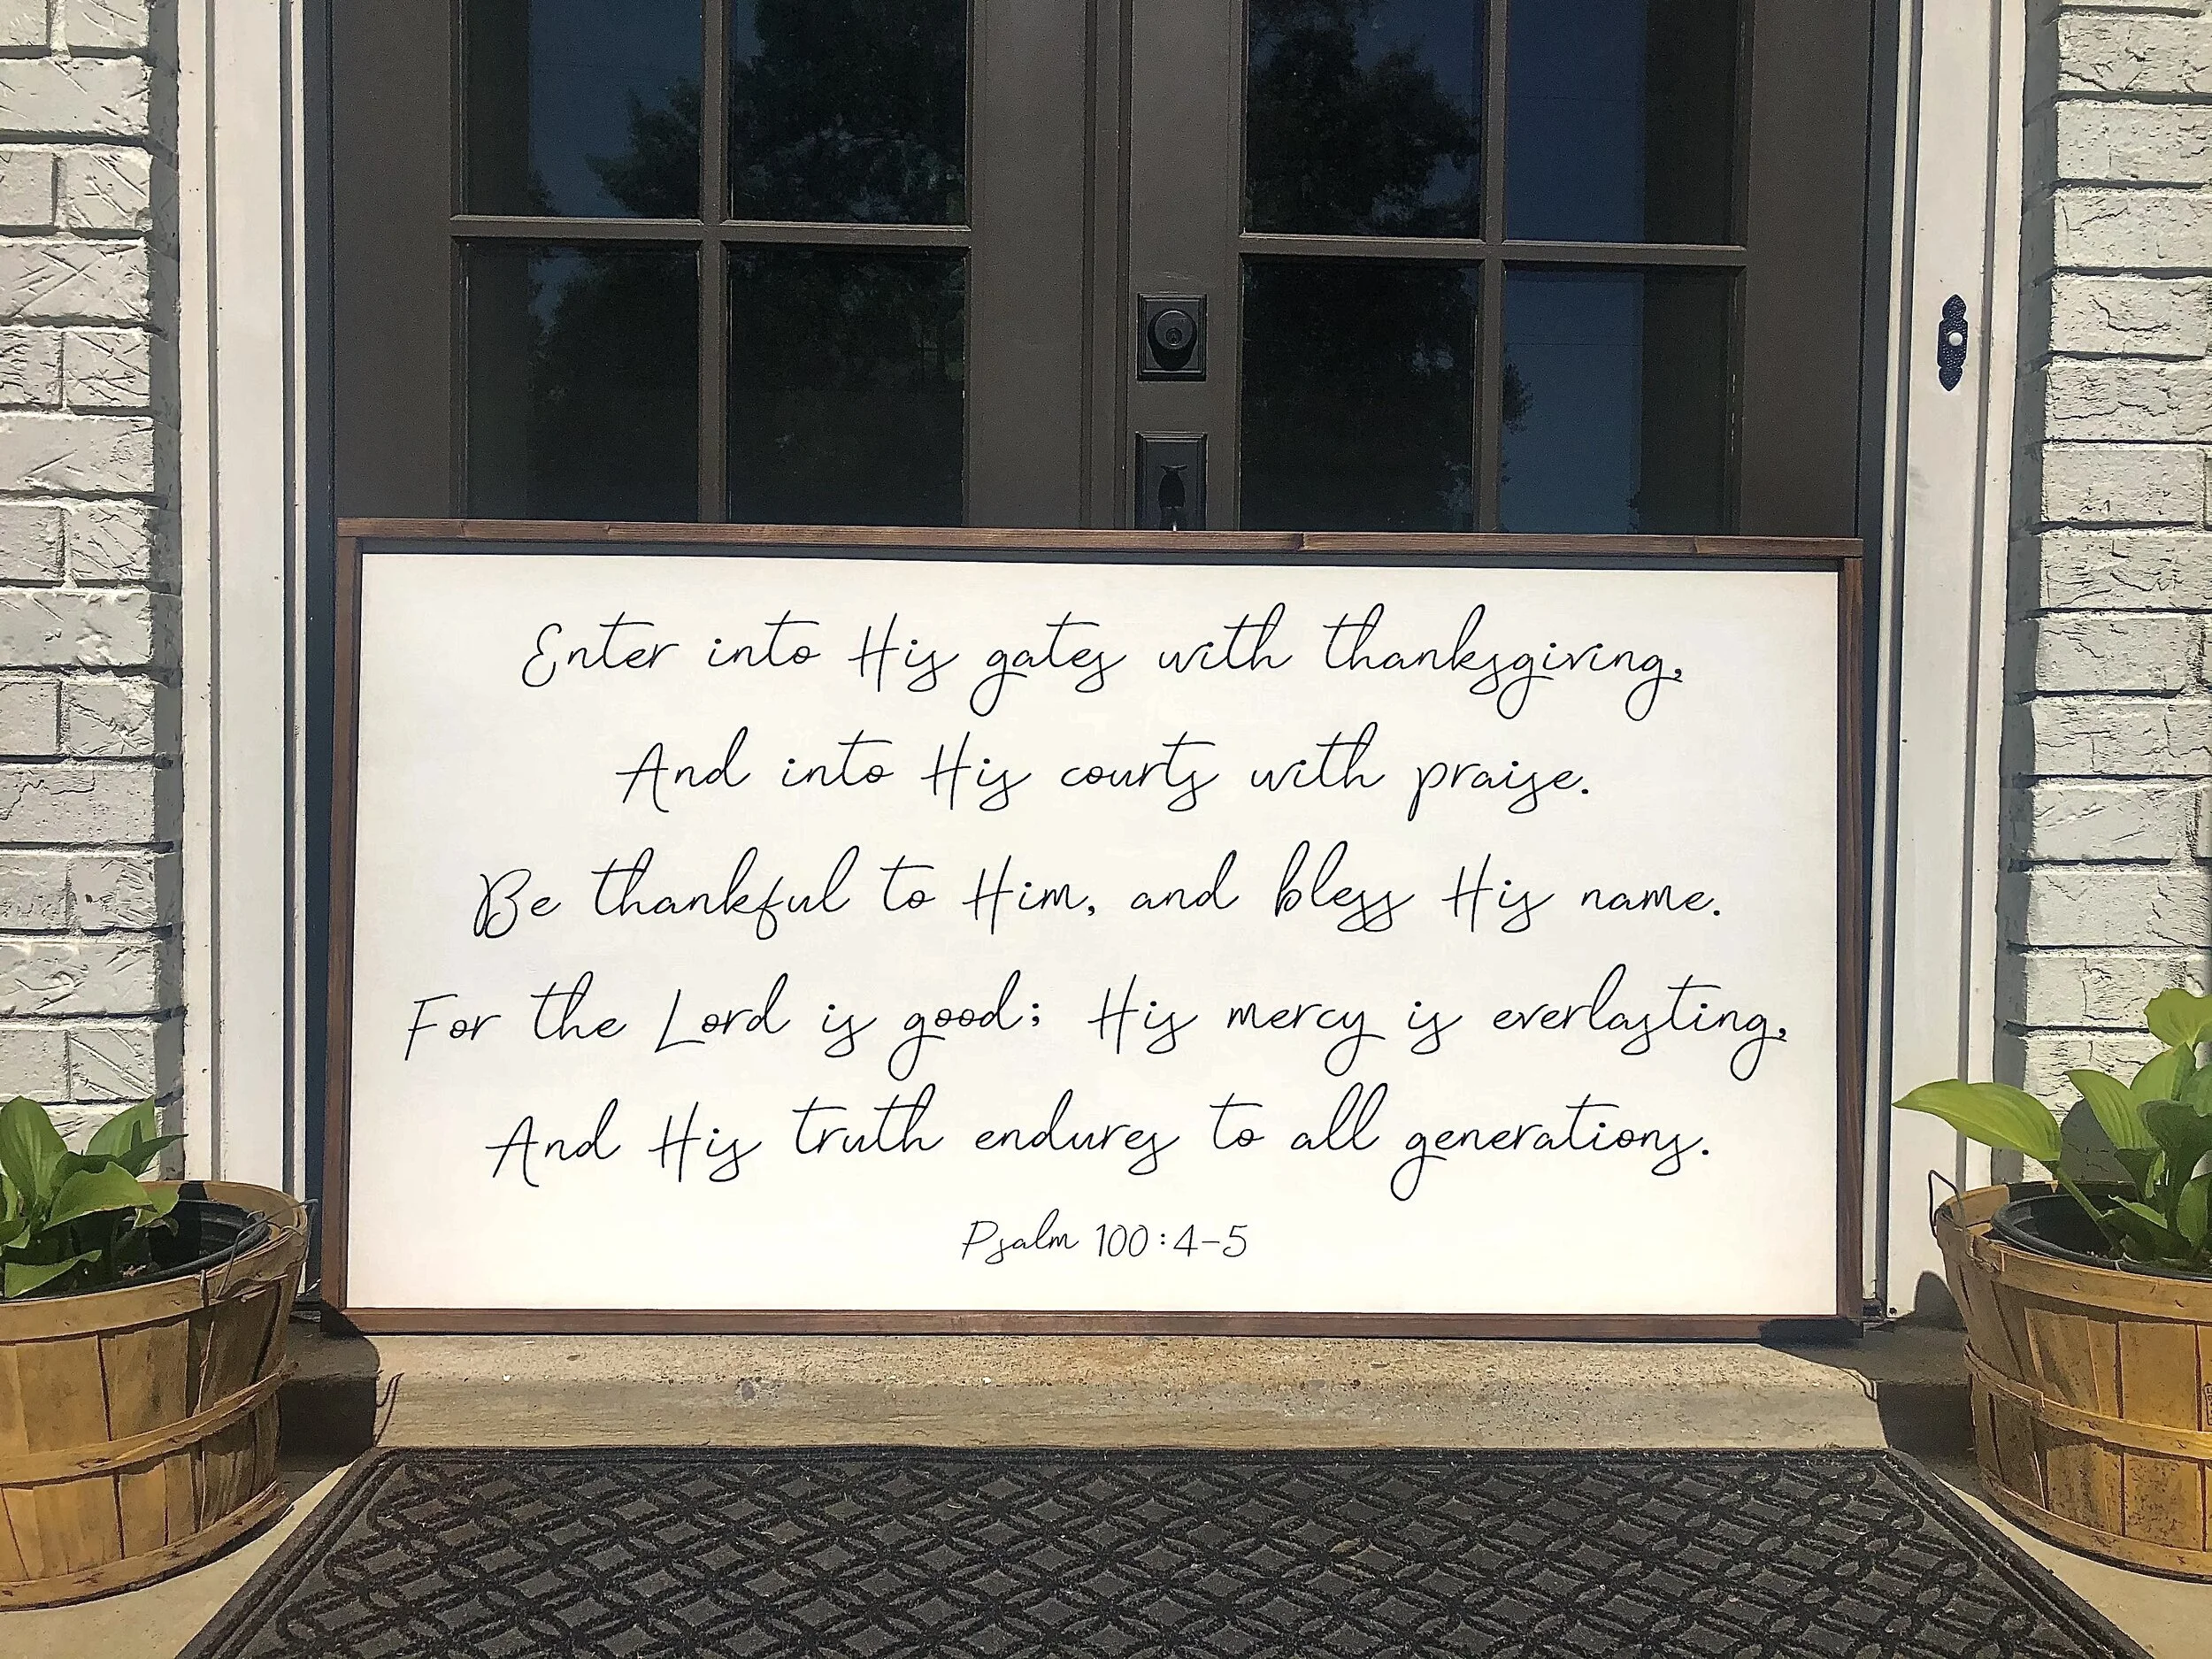 Enter into His gates with thanksgiving,
And into His courts with praise.
Be thankful to Him, and bless His name.
For the Lord is good; His mercy is everlasting,
And His truth endures to all generations.
Psalm 100:4-5